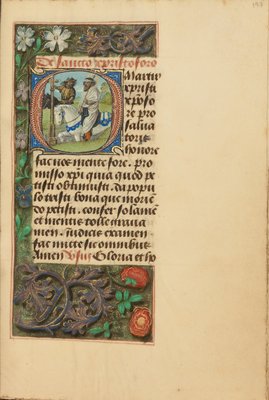 De sancto xpristoforo
Martir
xpristi
xpofo
re pro
salua
toris
honore
fac nos mente fore. pro
misso xpi quia quod pe
tisti obtinuisti. da popu
lo tristi bona que morie
do petisti. confer solamē
et mentis tolle grauā
men. iudicis examen
fac mite sit omnibus
Amen Vsus Gloria et ho